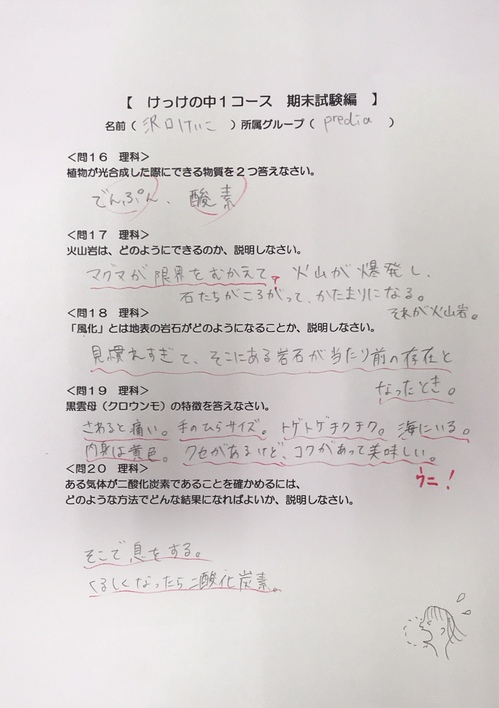 【 けっけの中1コース 期末試験編 】
名前( 沢口けいこ )所属グループ( predia )
<問16 理科>
植物が光合成した際にできる物質を2つ答えなさい。
でんぷん、酸素
<問17 理科>
火山岩は、どのようにできるのか、説明しなさい。
マグマが限界をむかえて、火山が爆発し、
石たちがころがって、かたまりになる。
それが火山岩。
<問18 理科>
「風化」とは地表の岩石がどのようになることか、説明しなさい。
見慣れすぎて、そこにある岩石が当たり前の存在と
なったとき。
<問19 理科>
黒雲母(クロウンモ)の特徴を答えなさい。
さわると痛い。手のひらサイズ。トゲトゲチクチク。海にいる。
内身は黄色。クセがあるけど、コクがあって美味しい。
ウニ!
<問20 理科>
ある気体が二酸化炭素であることを確かめるには、
どのような方法でどんな結果になればよいか、説明しなさい。
そこで息をする。
くるしくなったら二酸化炭素。